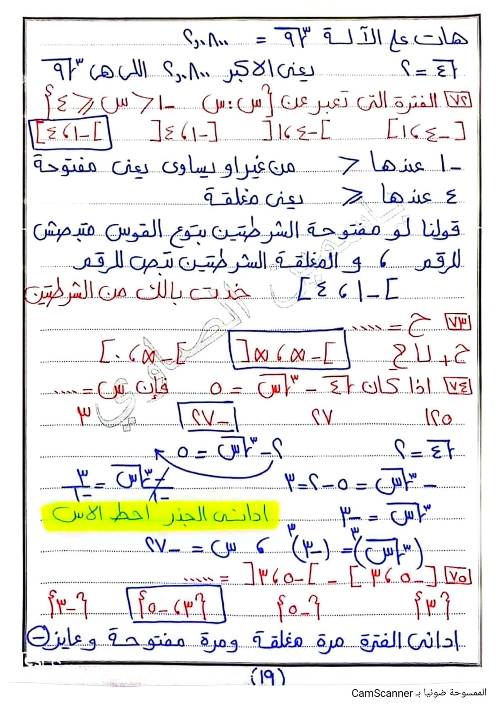 هات على الآلة ∛٩ = ٢,٠٨٠٠
√٤ = ٢ يعنى الاكبر ٢,٠٨٠٠ اللى هى ∛٩
٧٢ الفترة التى تعبر عن {س : س -١ < س ≤ ٤}
[-١،٤] ]-١،٤[ [-١،٤[ ]-١،٤]
-١ عندها < من غير او يساوى يعنى مفتوحة
٤ عندها ≤ يعنى مغلقة
قولنا لو مفتوحة الشرطتين بتوع القوس متبصش
للرقم ، و المغلقة الشرطتين تبص للرقم
]-١،٤] خدت بالك من الشرطتين
٧٣ ح = .....
ح+ ∪ ح- ]-∞،∞[ ]-∞،٠[
٧٤ اذا كان √٤ - ∛س = ٥ فإن س = ....
١٢٥ ٢٧ -٢٧ ٣
√٤ = ٢ ٢ - ∛س = ٥
- ∛س = ٥ - ٢ = ٣ -∛س/-١ = ٣/-١
∛س = -٣ ادانى الجذر احط الاس
(∛س)³ = (-٣)³ ، س = -٢٧
٧٥ [-٥،٣] - ]-٥،٣[ = .....
{٣} {-٥} {-٥،٣} {-٣}
ادانى الفترة مرة مغلقة ومرة مفتوحة وعايز -
(١٩)
الممسوحة ضوئيا بـ CamScanner